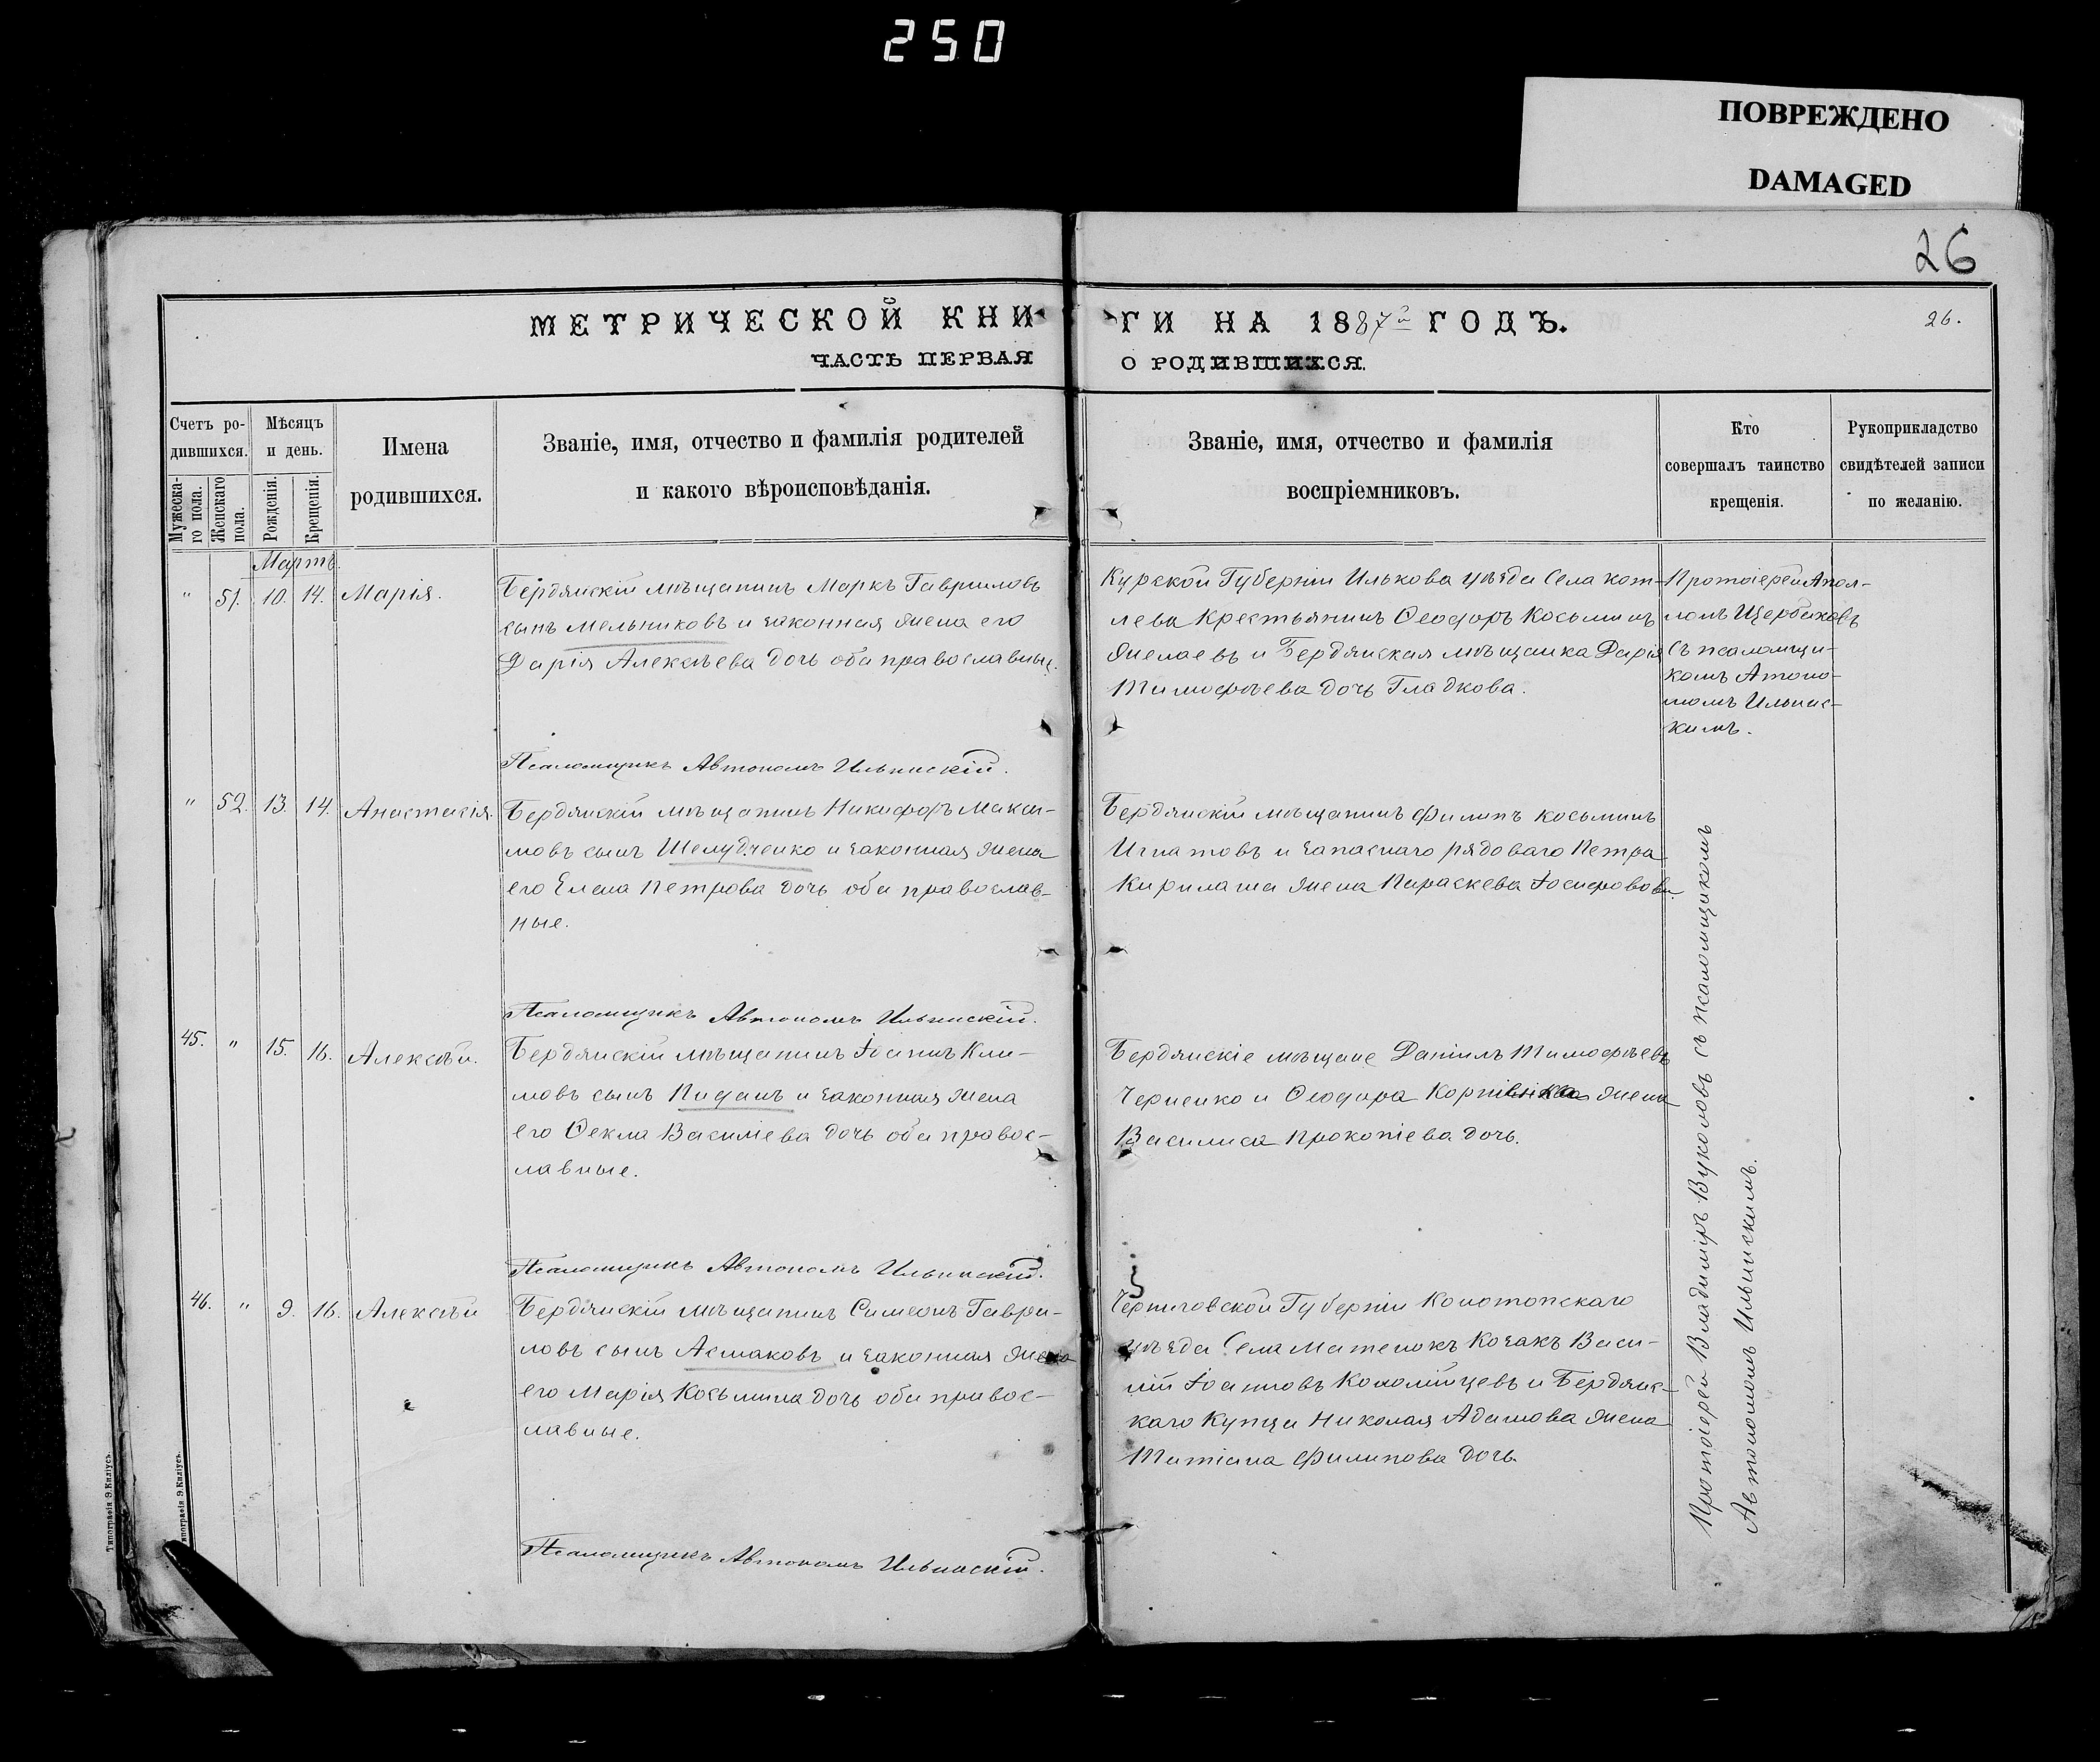 250
ПОВРЕЖДЕНО
DAMAGED
26
МЕТРИЧЕСКОЙ КНИ
ГИ НА 1887й ГОДЪ.
26.
ЧАСТЬ ПЕРВАЯ
О РОДИВШИХСЯ.
Счетъ ро-
дившихся.
Мужеска-
го пола.
Женскаго
пола.
Мѣсяцъ
и день.
Рожденія.
Крещенія.
Имена
родившихся.
Званіе, имя, отчество и фамилія родителей
и какого вѣроисповѣданія.
Званіе, имя, отчество и фамилія
воспріемниковъ.
Кто
совершалъ таинство
крещенія.
Рукоприкладство
свидѣтелей записи
по желанію.
Мартъ.
" 51. 10. 14. Марія.
Бердянскій мѣщанинъ Маркъ Гавриловъ
сынъ Мельниковъ и законная жена его
Дарія Алексѣева дочь оба православные.
Псаломщикъ Автономъ Ильинскій.
Курской Губерніи Илькова уѣзда Села кот-
лева Крестьянинъ Ѳеодоръ Косьминъ
Жилаевъ и Бердянская мѣщанка Дарія
Тимофѣева дочь Гладкова.
Протоіерей Апол-
лонъ Щербаковъ
съ псаломщи-
комъ Атоно-
момъ Ильинс-
кимъ.
" 52. 13. 14. Анастасія.
Бердянскій мѣщанинъ Никифоръ Макси-
мовъ сынъ Шелудченко и законная жена
его Елена Петрова дочь оба православ-
ные.
Псаломщикъ Автономъ Ильинскій.
Бердянскій мѣщанинъ Филипъ Косьминъ
Игнатовъ и запаснаго рядоваго Петра
Кирилаша жена Параскева Іосифовова.
45. " 15. 16. Алексѣй.
Бердянскій мѣщанинъ Іоаннъ Кли-
мовъ сынъ Пиданъ и законная жена
его Ѳекла Василіева дочь оба правос-
лавные.
Псаломщикъ Автономъ Ильинскій.
Бердянскіе мѣщане Даніилъ Тимофѣевъ
Черненко и Ѳеодора жена
Василиса Прокопіева дочь.
46. " 9. 16. Алексѣй
Бердянскій мѣщанинъ Симеонъ Гаври-
ловъ сынъ Асмаковъ и законная жена
его Марія Косьмина дочь оба правос-
лавные.
Псаломщикъ Автономъ Ильинскій.
Черниговской Губерніи Конотопскаго
уѣзда Села Матенокъ Козакъ Васи-
лій Іоанновъ Коломійцевъ и Бердянс-
каго Купца Николая Адамова жена
Татіана Филипова дочь.
Протоіерей Владиміръ Вуколовъ съ псаломщикомъ
Автономомъ Ильинскимъ.
Типографія Э. Киліусъ.
Типографія Э. Киліусъ.